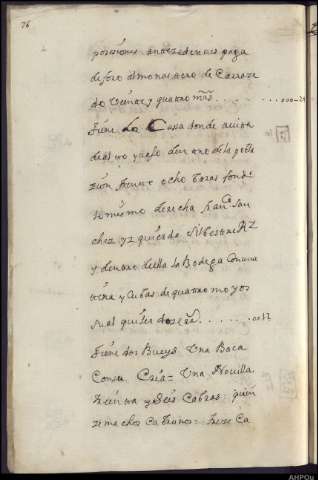 76
posesiones antezedentes paga
de foro al monasterio de Carraze
do veinte y quatro mrs. . . . . . . . . . 000-24
Tiene La Cassa donde avita
de alto y vajo dentro de la pobla
zion treinta y ocho baras fonde
lo mismo derecha Franco San
chez yzquierda Silbestre
y dentro della la Bodega con una
y Cubas de quatro moyos
su alquiler doze rs. . . . . . . 0012
Tiene dos Bueys Una Baca
Con su Cria = Una Novilla
treinta y seis Cabras = quin
ze machos Cabrunos = treze Ca
AHPOu